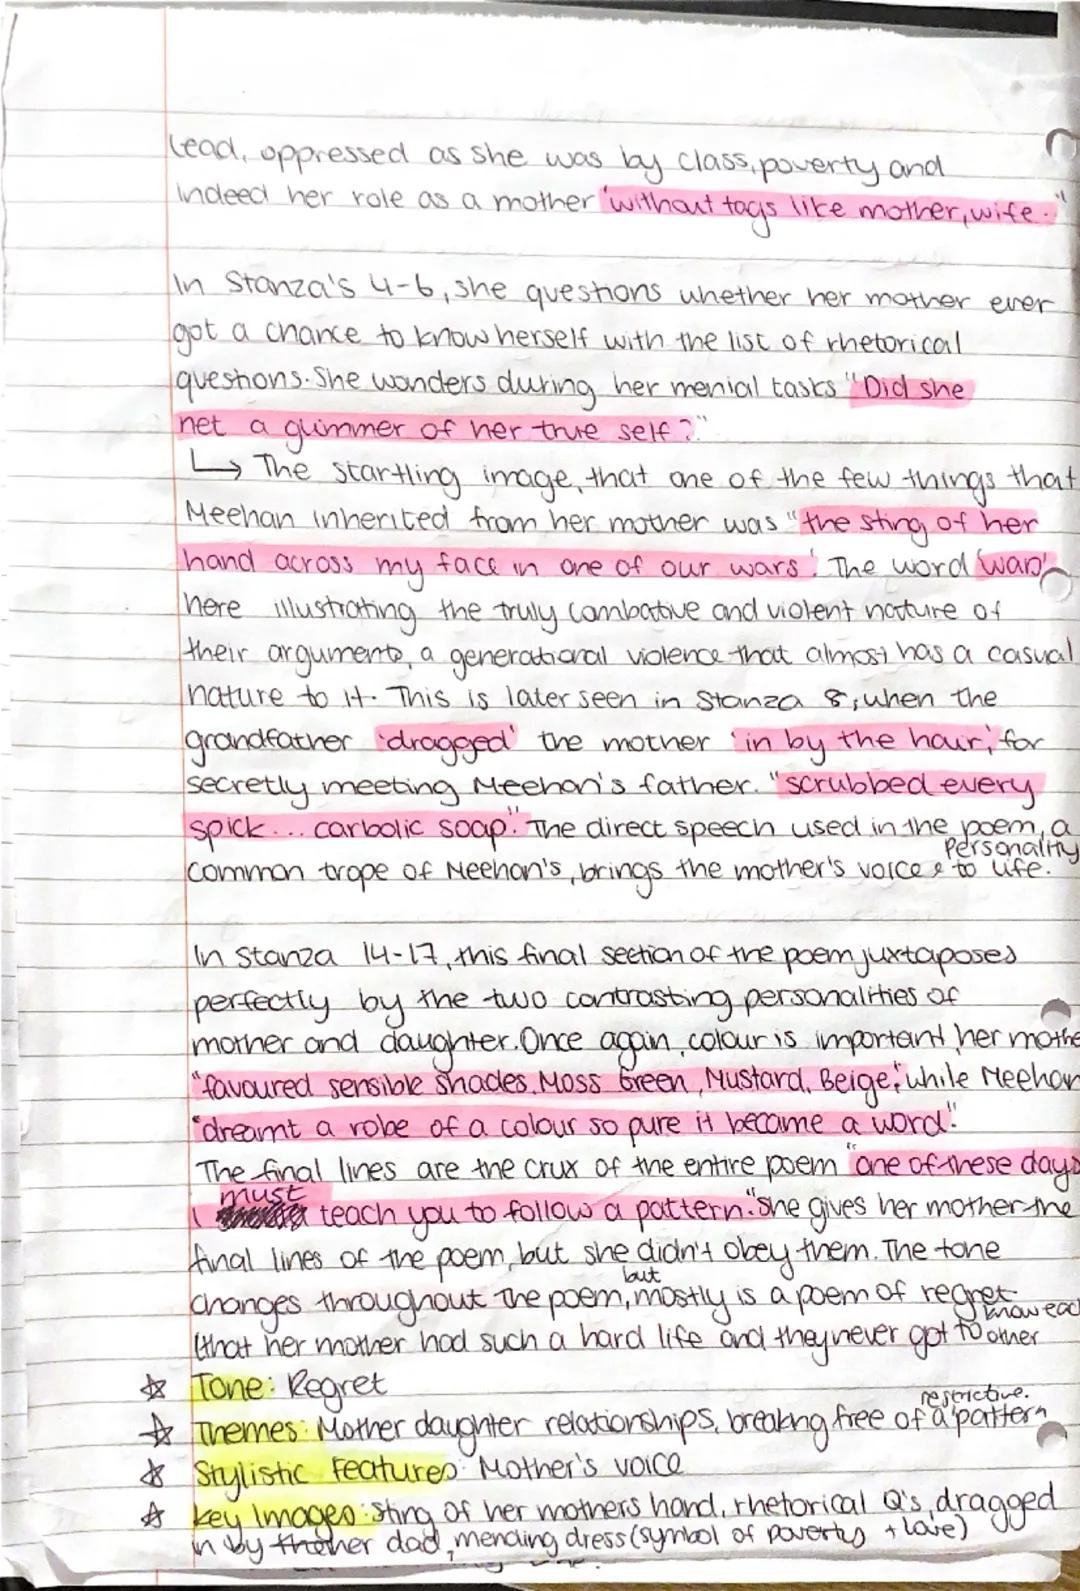 lead, oppressed as she was by class, poverty and
indeed her role as a mother "without tags like mother, wife."
In Stanza's 4-6, she questions whether her mother ever
got a chance to know herself with the list of rhetorical
questions. She wonders during her menial tasks "Did she
net a glimmer of her true self?"
↳ The startling image, that one of the few things that
Meehan inherited from her mother was "the sting of her
hand across my face in one of our wars'. The word 'war'
here illustrating the truly combative and violent nature of
their arguments, a generational violence that almost has a casual
nature to it. This is later seen in Stanza 8, when the
grandfather 'dragged' the mother 'in by the hair,' for
secretly meeting Meehan's father. "scrubbed every
spick... carbolic soap." The direct speech used in the poem, a
common trope of Meehan's, brings the mother's voice & personality to life.
In Stanza 14-17, this final section of the poem juxtaposes
perfectly by the two contrasting personalities of
mother and daughter. Once again, colour is important, her mothe
"favoured sensible shades, Moss Green, Mustard, Beige," while Meehan
"dreamt a robe of a colour so pure it became a word".
The final lines are the crux of the entire poem "one of these days
I must teach you to follow a pattern." she gives her mother the
final lines of the poem, but she didn't obey them. The tone
changes throughout the poem, but mostly is a poem of regret
(that her mother had such a hard life and they never got to know each other
☆ Tone: Regret
☆ Themes: Mother daughter relationships, breaking free of a restrictive. 'pattern'
☆ Stylistic Features: Mother's voice
☆ Key Images: Sting of her mothers hand, rhetorical Q's, dragged
in by her dad, mending dress (symbol of poverty + love)